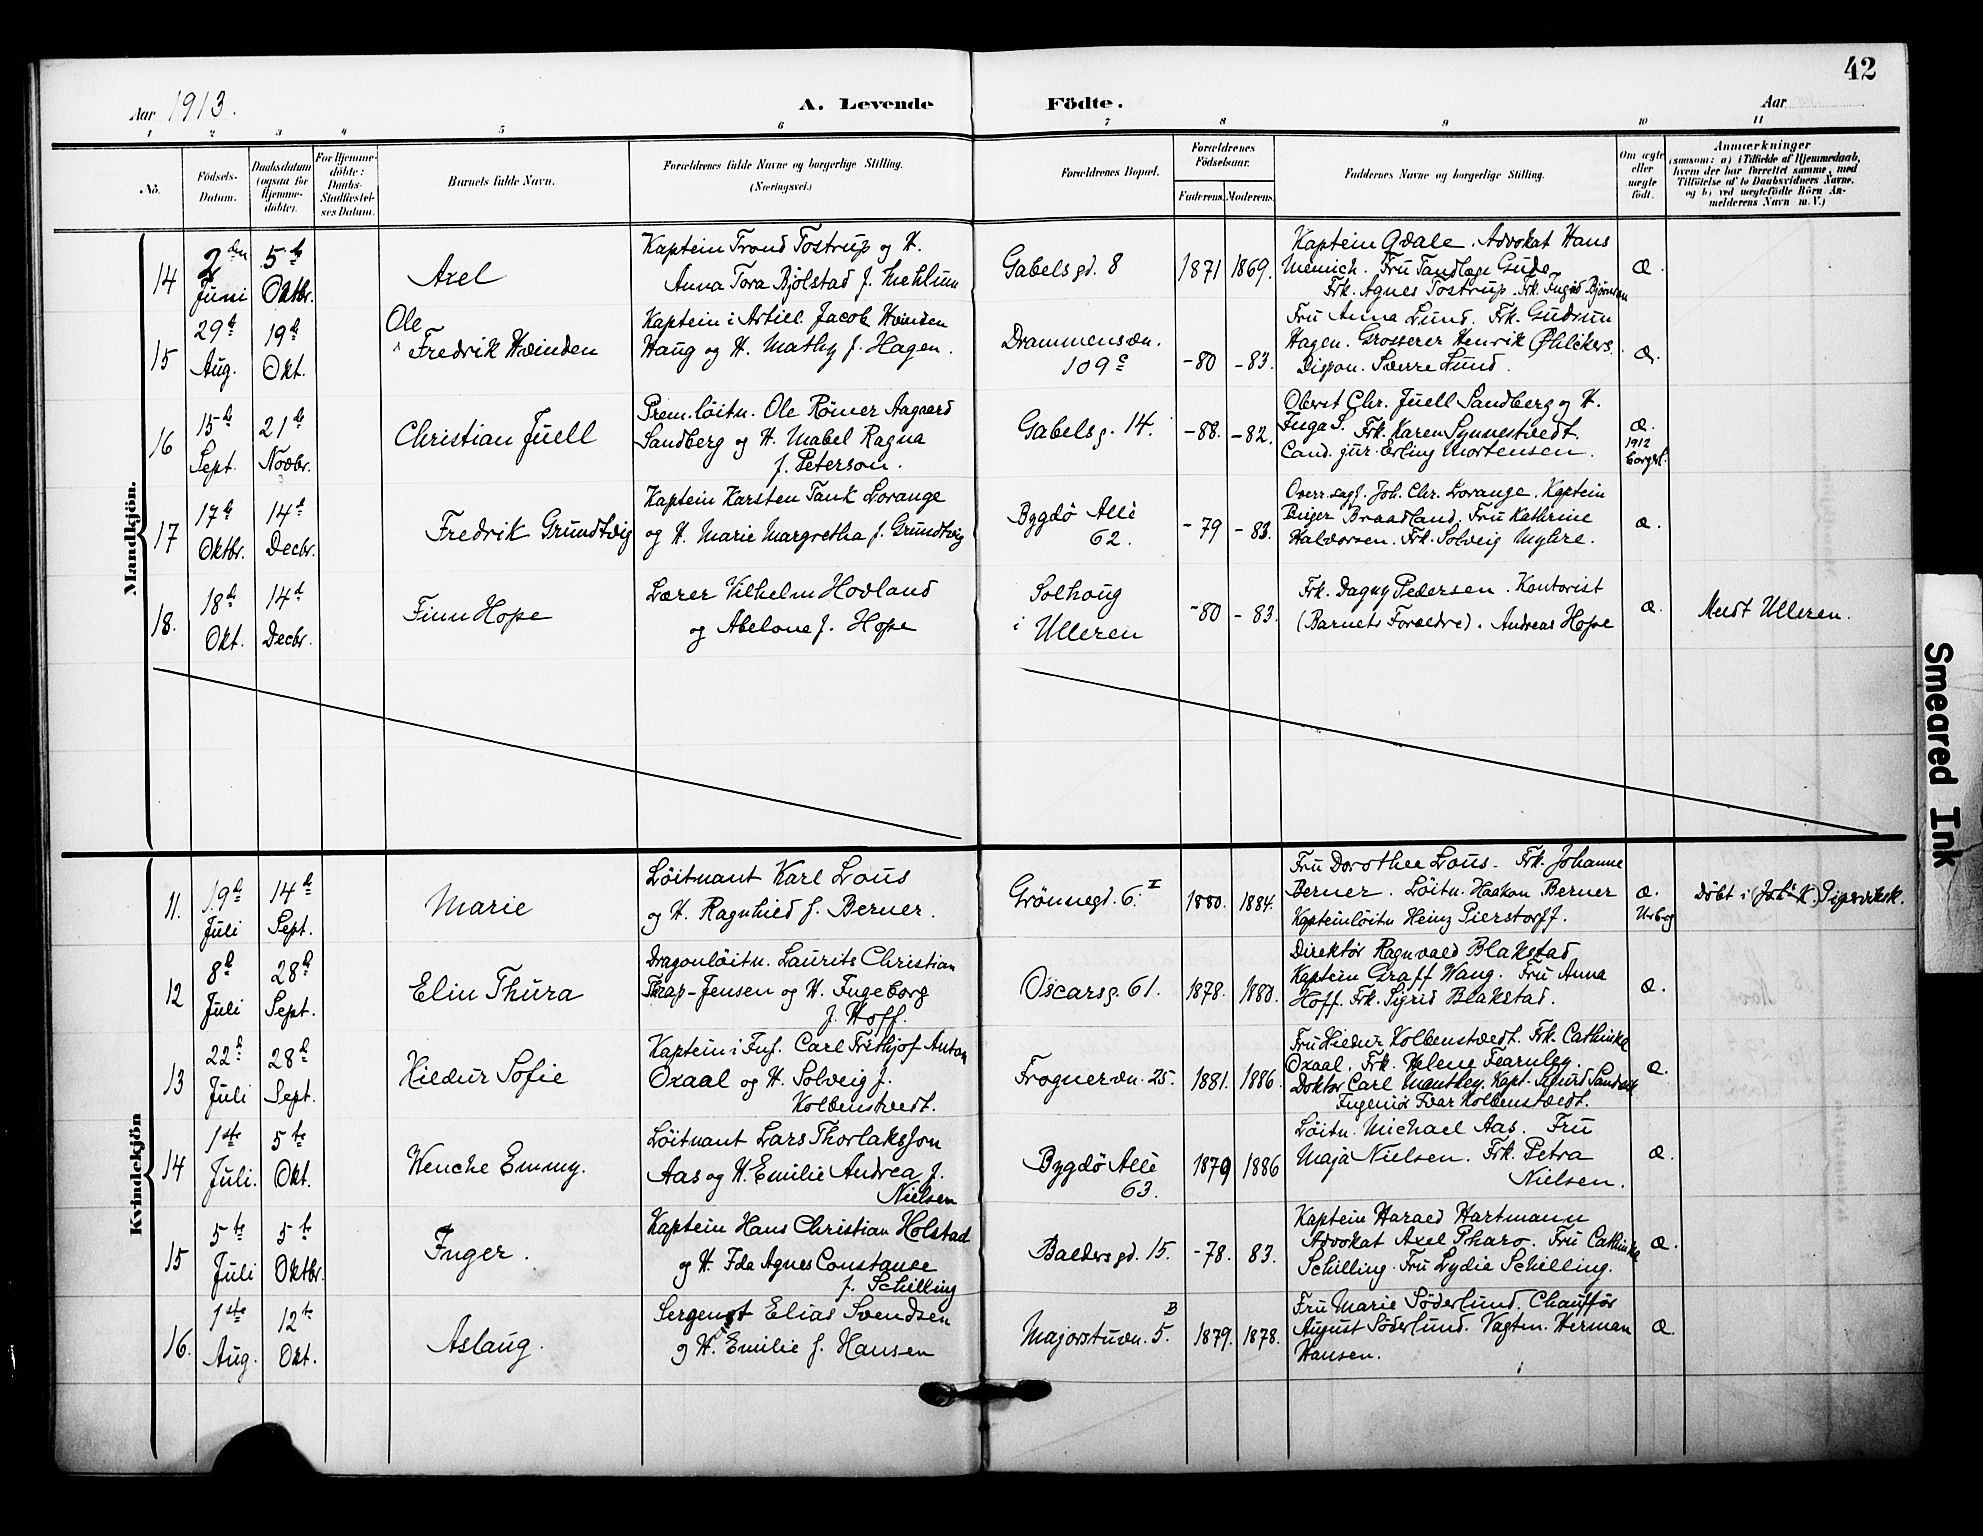 42
Aar 1913.
A. Levende Födte.
Aar
1 2 3 4 5 6 7 8 9 10 11
No.
Födsels-Datum.
Daabsdatum (ogsaa for Hjemme-döbte).
For Hjemme-döbte: Daabs-Stadfæstel-ses Datum.
Barnets fulde Navn.
Forældrenes fulde Navne og borgerlige Stilling. (Næringsvei.)
Forældrenes Bopæl.
Forældrenes Födselsaar.
Faderens. Moderens.
Faddernes Navne og borgerlige Stilling.
Om ægte eller uægte födt.
Anmærkninger
(saasom: a) i Tilfælde af Hjemmedaab, hvem der har forrettet samme, med Tilföielse af to Daabsvidners Navne, og b) ved uægtefödte Börn An-melderens Navn m. V.)
Mandkjön.
14 2den Juni 5te Oktbr. Axel
Kaptein Trond Tostrup og H.
Anna Tora Bjölstad f. Mehlum
Gabelsgd. 8 1871 1869.
Kaptein Qvale. Advokat Hans
Memich. Fru Tandlæge Gude
Frk. Agnes Tostrup. Frk. Ingrid Bjørnson
Æ.
15 29de Aug. 19de Okt. Ole Fredrik Hvinden
Kaptein i Artill. Jacob Hvinden
Haug og H. Mathy f. Hagen.
Drammensvn. 109c -80 -83.
Fru Anna Lund. Frk. Gudrun
Hagen. Grosserer Henrik Øhlckers.
Dispon. Sverre Lund.
Æ.
16 15de Sept. 21de Novbr. Christian Juell
Prem.löitn. Ole Römer Aagaard
Sandberg og H. Mabel Ragna
f. Peterson.
Gabelsg. 14. -88. -82.
Oberst Chr. Juell Sandberg og H.
Inga S. Frk. Karen Synnestvedt.
Cand. jur. Erling Mortensen.
Æ. 1912 borgerl.
17 17de Oktbr. 14de Decbr. Fredrik Grundtvig
Kaptein Karsten Tank Lorange
og H. Marie Margretha f. Grundtvig
Bygdö Allé 62. -79 -83.
Overr.sagf. Joh. Chr. Lorange. Kaptein
Birger Braadland. Fru Kathrine
Halvorsen. Frk. Solveig Myhre.
Æ.
18. 18de Okt. 14de Decbr. Finn Hope
Lærer Vilhelm Hovland
og Abelone f. Hope
Solhaug i Ulleren -80 -83.
Frk. Dagny Pedersen. Kontorist
(Barnets Forældre). Andreas Hope
Æ. Meldt Ulleren.
Kvindekjön
11. 19de Juli 14de Sept. Marie
Löitnant Karl Lous
og H. Ragnhild f. Berner.
Grönnegd. 6.I 1880. 1884.
Fru Dorothee Lous. Frk. Johanne
Berner. Löitn. Haakon Berner
Kapteinlöitn Heinz Pierstorff.
Æ. Döbt i (Joh's K.) Pipervikск.
12 8de Juli 28de Sept. Elin Thura
Dragonlöitn. Laurits Christian
Thrap-Jensen og H. Ingeborg
f. Hoff.
Oscarsg. 61. 1878. 1880.
Direktör Ragnvald Blakstad
Kaptein Graff Wang. Fru Anna
Hoff. Frk. Sigrid Blakstad.
Æ.
13 22de Juli 28de Sept. Hildur Sofie
Kaptein i Inf. Carl Frithjof Anton
Oxaal og H. Solveig f.
Kolbenstvedt.
Frognervn. 25. 1881. 1886.
Fru Hildur Kolbenstvedt. Frk. Cathinka
Oxaal. Frk. Helene Fearnley.
Doktor Carl Manthey. Kapt. Sigurd Sandvik
Ingeniör Ivar Kolbenstvedt.
Æ.
14 1ste Juli. 5te Okt. Wenche Emmy.
Löitnant Lars Thorlaksson
Aas og H. Emilie Andrea f.
Nielsen
Bygdö Allé 63. 1879 1886
Löitn. Michael Aas. Fru
Maja Nielsen. Frk. Petra
Nielsen.
Æ.
15 5te Juli 5te Oktbr. Inger.
Kaptein Hans Christian Holstad
og H. Ida Agnes Constanse
f. Schilling
Baldersgd. 15. -78. 83.
Kaptein Harald Hartmann
Advokat Axel Pharo. Fru Cathinka
Schilling. Fru Lydia Schilling.
Æ.
16. 1ste Aug. 12te Okt. Aslaug.
Sergent Elias Svendsen
og H. Emilie f. Hansen
Majorstuvn. 5.B 1879. 1878.
Fru Marie Söderlund. Chauffør
August Söderlund. Vagtm. Herman
Hansen.
Æ.
Smeared Ink